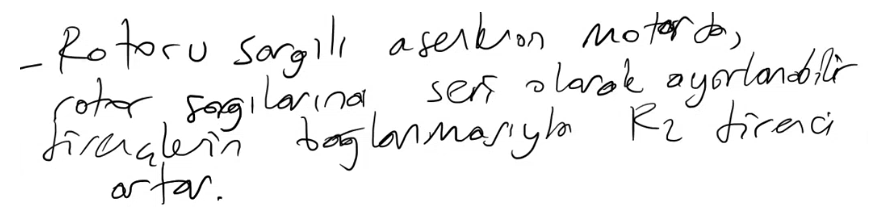 - Rotoru sargılı asenkron motorda,
rotor sargılarına seri olarak ayarlanabilir
dirençlerin bağlanmasıyla R2 direnci
artar.